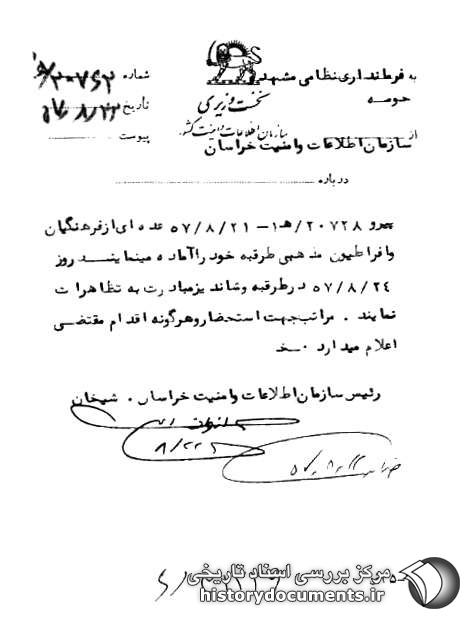 به فرمانداری نظامی مشهد و حومه
نخست وزیری
سازمان اطلاعات و امنیت کشور
از سازمان اطلاعات وامنیت خراسان
شماره ۲۰۷۶۲/
تاریخ ۵۷/۸/۲۳
پیوست
درباره
پیرو ۲۰۷۲۸/ﻫ۱ - ۵۷/۸/۲۱ عده ای از فرهنگیان
وافراطیون مذهبی طرقبه خود را آماده مینمایند روز
۵۷/۸/۲۴ درطرقبه وشاندیز مبادرت به تظاهرات
نمایند . مراتب جهت استحضار وهرگونه اقدام مقتضی
اعلام میدارد .
رئیس سازمان اطلاعات وامنیت خراسان . شیخان
مرکز بررسی اسناد تاریخی
historydocuments.ir